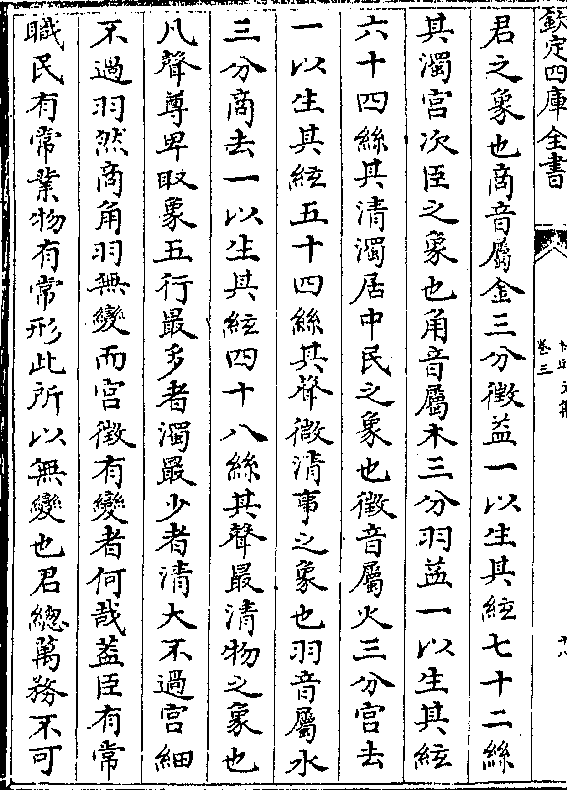 欽定四庫全書
卷三
十八
君之象也商音屬金三分徵益一以生其絃七十二絲
其濁宫次臣之象也角音屬木三分羽益一以生其絃
六十四絲其清濁居中民之象也徵音屬火三分宫去
一以生其絃五十四絲其聲微清事之象也羽音屬水
三分商去一以生其絃四十八絲其聲最清物之象也
凡聲尊卑取象五行最多者濁最少者清大不過宫細
不過羽然商角羽無變而宫徵有變者何哉葢臣有常
職民有常業物有常形此所以無變也君總萬務不可